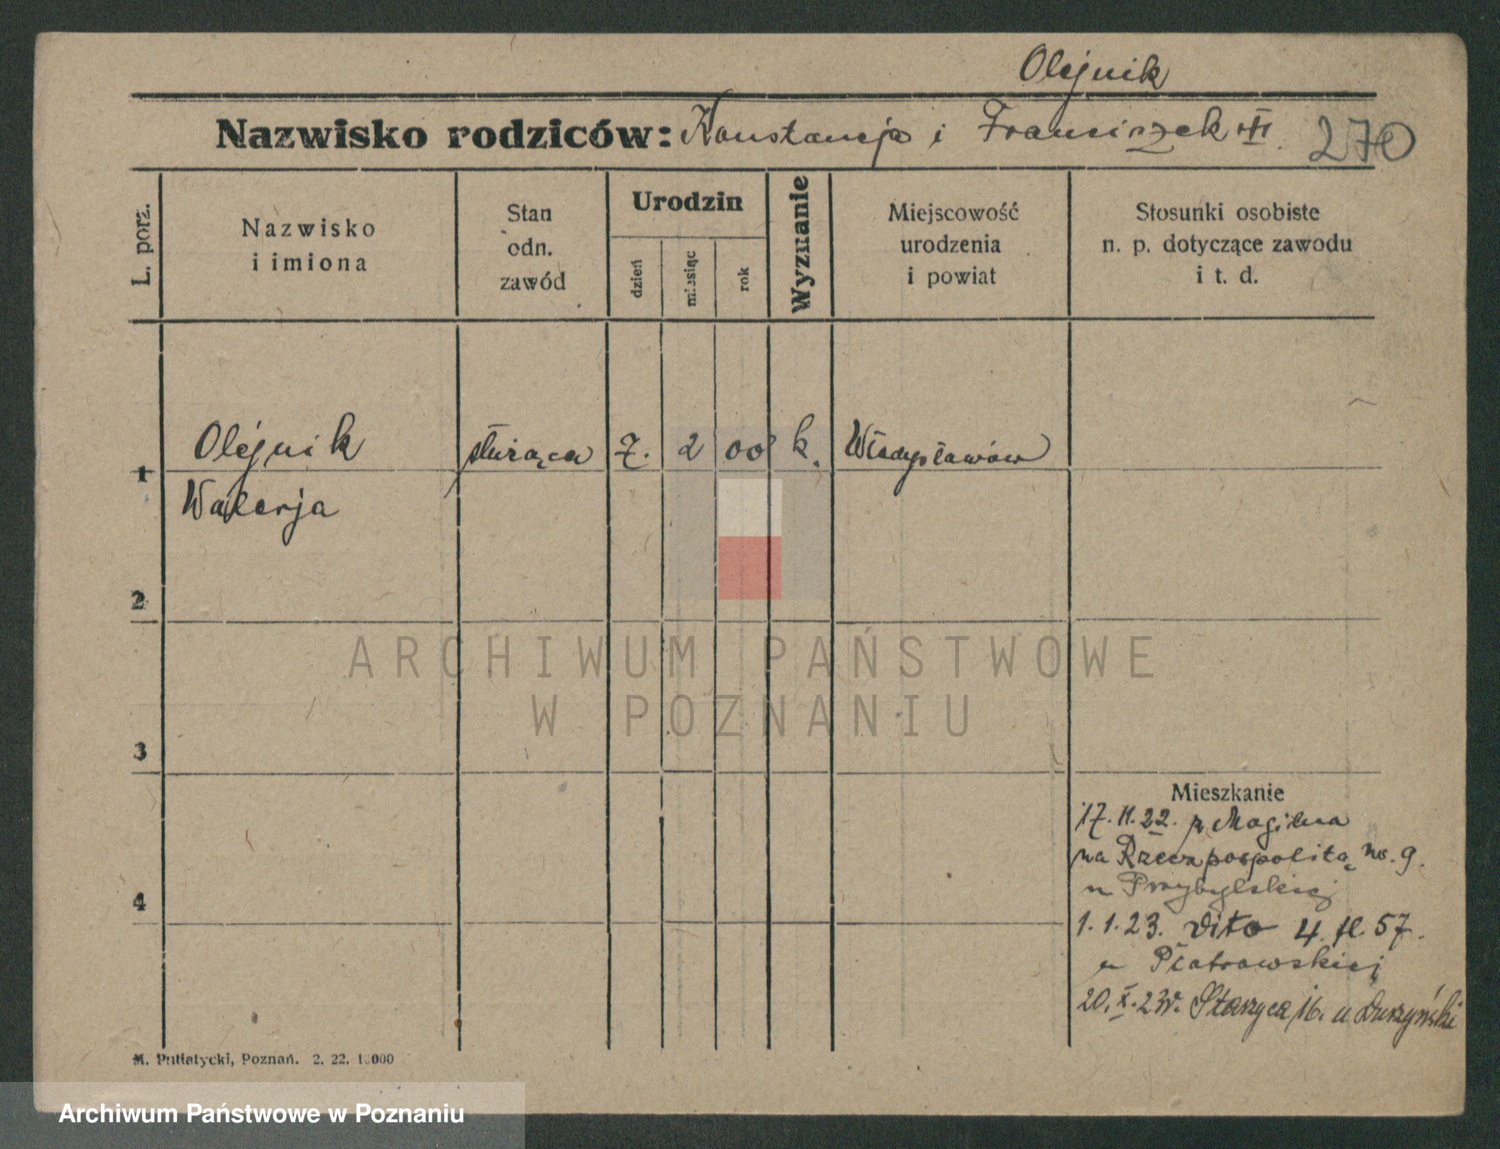 Olejnik
Nazwisko rodziców: Konstancja i Franciszek III. 270
L. porz.
Nazwisko
i imiona
Stan
odn.
zawód
Urodzin
dzień
miesiąc
rok
Wyznanie
Miejscowość
urodzenia
i powiat
Stosunki osobiste
n. p. dotyczące zawodu
i t. d.
1
Olejnik służąca 7. 2 00 k. Władysławów
Walerja
2
3
4
Mieszkanie
17. 11. 22. z Mogilna
na Rzeczpospolitą no. 9.
u Przybylskiej
1. 1. 23. dito 4. 57.
u Piotrowskiej
20. X. 23r. Staszyca 16. u Duszyński
M. Putiatycki, Poznań. 2. 22. 10000
ARCHIWUM PAŃSTWOWE
W POZNANIU
Archiwum Państwowe w Poznaniu